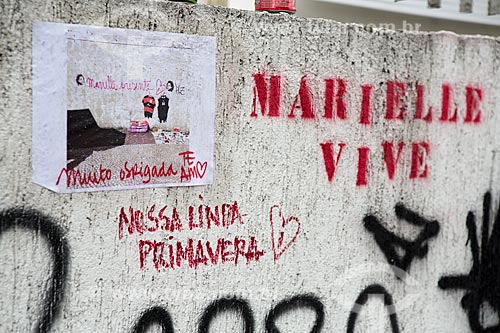 Marielle presente
Muito obrigada TE
AMO
MARIELLE
VIVE
NOSSA LINDA
PRIMAVERA